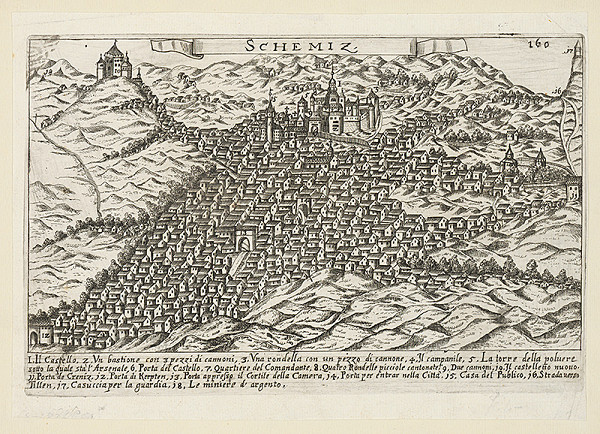 SCHEMIZ.
160
18
17
16
1. Il Castello, 2. Vn bastione con 3 pezzi di cannoni, 3. Vna rondella con un pezzo di cannone, 4. Il campanile, 5. La torre della poluere
sotto la quale sta l'Arsenale, 6. Porta del Castello, 7. Quartiere del Comandante, 8. Quatro Rondelle picciole cantonate, 9. Due cannoni, 10. Il castello nuouo.
11. Porta de Cremiz, 12. Porta di Krepten, 13. Porta appresso il Cortile della Camera, 14. Porta per entrar nella Città. 15. Casa del Publico, 16. Strada uerso
Tillen, 17. Casuccia per la guardia, 18, Le miniere d'argento,